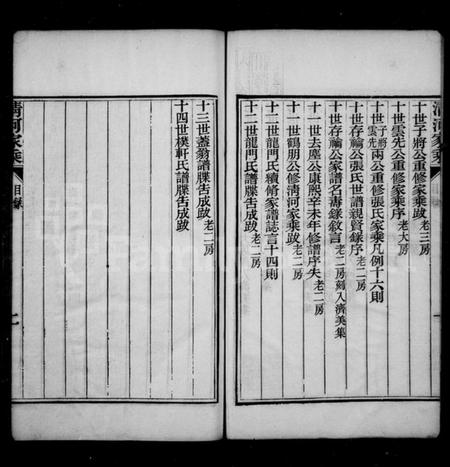 清河家乘
十世子將公重修家乘跋老三房
十世雲先公重修家乘序老大房
十世子將雲先兩公重修張氏家乘凡例十六則
十世存諭公張氏世譜視賢錄序老二房
十世存諭公家譜名壽錄敘言老二房刻入濟美集
十一世去塵公康熙辛未年修譜序失老二房
十一世鶴朋公修淸河家乘跋老二房
十二世龍門氏續修家譜誌言十四則
十二世龍門氏譜牒吿成跋老二房
十三世蓋翁譜牒吿成跋老二房
十四世樸軒氏譜牒吿成跋
淸河家乘
目錄
二